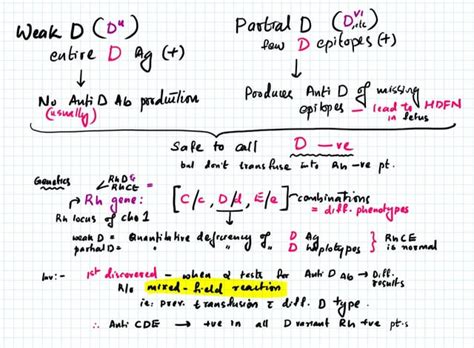 Weak D (Dᵘ)
entire D Ag (+)
No Anti D Ab production
(usually)
Partial D (Dᵛᴵ, etc)
few D epitopes (+)
Produces Anti D of missing
epitopes — lead to HDFN
in fetus
Safe to call D -ve
but don't transfuse into Rh -ve pt.
Genetics
RhD
RhCE =
Rh gene:
Rh locus of cho 1
[C/c, D/d, E/e] → combinations
= diff. phenotypes
weak D = Quantitative deficiency of D Ag
partial D = " " " D haplotypes
RhCE is normal
Inv:- 1st discovered - when 2 tests for Anti D Ab → Diff. results
R/o mixed-field reaction
ie: prev. transfusion c diff. D type.
∴ Anti CDE → +ve in all D variant Rh +ve pt.s